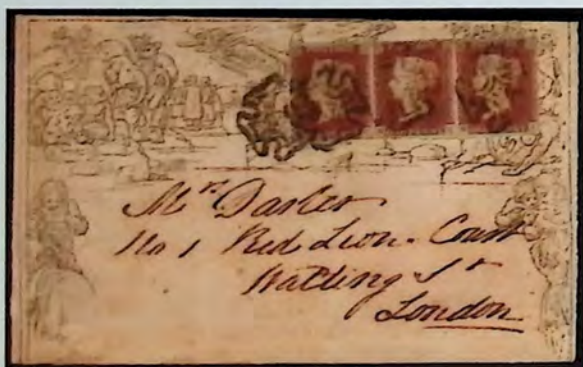 Mrs. Darler
No 1 Red Lion Court
Watling St
London